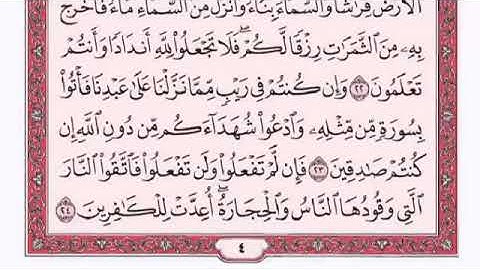 الْأَرْضَ فِرَاشًا وَالسَّمَاءَ بِنَاءً وَأَنزَلَ مِنَ السَّمَاءِ مَاءً فَأَخْرَجَ
بِهِۦ مِنَ الثَّمَرَاتِ رِزْقًا لَّكُمْ ۖ فَلَا تَجْعَلُوا لِلَّهِ أَندَادًا وَأَنتُمْ
تَعْلَمُونَ ٢٢ وَإِن كُنتُمْ فِي رَيْبٍ مِّمَّا نَزَّلْنَا عَلَىٰ عَبْدِنَا فَأْتُوا
بِسُورَةٍ مِّن مِّثْلِهِۦ وَادْعُوا شُهَدَاءَكُم مِّن دُونِ اللَّهِ إِن
كُنتُمْ صَادِقِينَ ٢٣ فَإِن لَّمْ تَفْعَلُوا وَلَن تَفْعَلُوا فَاتَّقُوا النَّارَ
الَّتِي وَقُودُهَا النَّاسُ وَالْحِجَارَةُ ۖ أُعِدَّتْ لِلْكَافِرِينَ ٢٤
٤